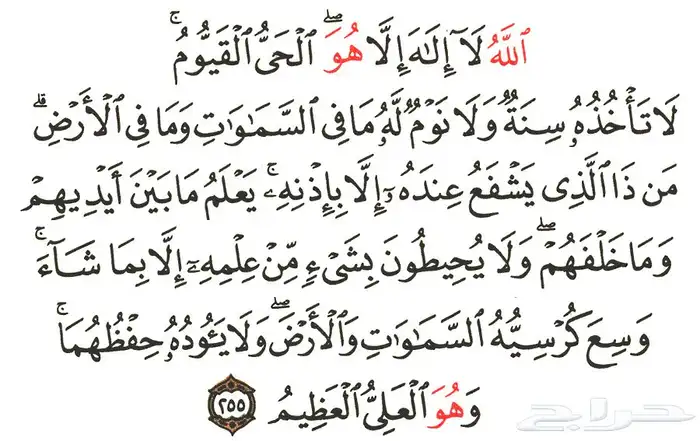 ٱللَّهُ لَآ إِلَـٰهَ إِلَّا هُوَ ۖ ٱلْحَىُّ ٱلْقَيُّومُ ۚ
لَا تَأْخُذُهُۥ سِنَةٌ وَلَا نَوْمٌ ۚ لَّهُۥ مَا فِى ٱلسَّمَـٰوَٰتِ وَمَا فِى ٱلْأَرْضِ ۗ
مَن ذَا ٱلَّذِى يَشْفَعُ عِندَهُۥٓ إِلَّا بِإِذْنِهِۦ ۚ يَعْلَمُ مَا بَيْنَ أَيْدِيهِمْ
وَمَا خَلْفَهُمْ ۖ وَلَا يُحِيطُونَ بِشَىْءٍ مِّنْ عِلْمِهِۦٓ إِلَّا بِمَا شَآءَ ۚ
وَسِعَ كُرْسِيُّهُ ٱلسَّمَـٰوَٰتِ وَٱلْأَرْضَ ۖ وَلَا يَـُٔودُهُۥ حِفْظُهُمَا ۚ
وَهُوَ ٱلْعَلِىُّ ٱلْعَظِيمُ ٢٥٥
حراج